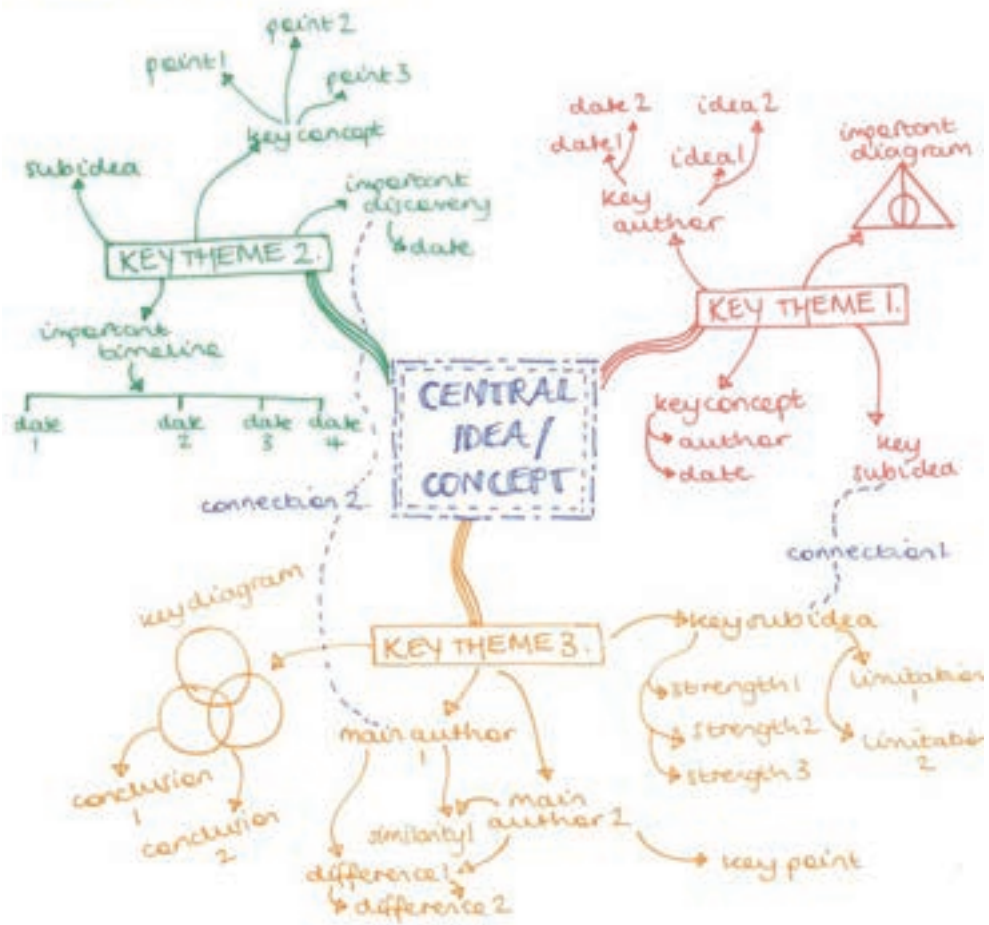 point 2
point 1
point 3
key concept
subidea
important
discovery
date
KEY THEME 2.
important
timeline
date
1
date
2
date
3
date
4
date 2
idea 2
date 1
idea 1
key
author
important
diagram
KEY THEME 1.
key concept
author
date
key
subidea
CENTRAL
IDEA/
CONCEPT
connection 2
connection 1
key diagram
KEY THEME 3.
key subidea
strength 1
strength 2
strength 3
limitation
1
limitation
2
main author
1
conclusion
1
conclusion
2
similarity 1
main
author 2
difference 1
difference 2
key point